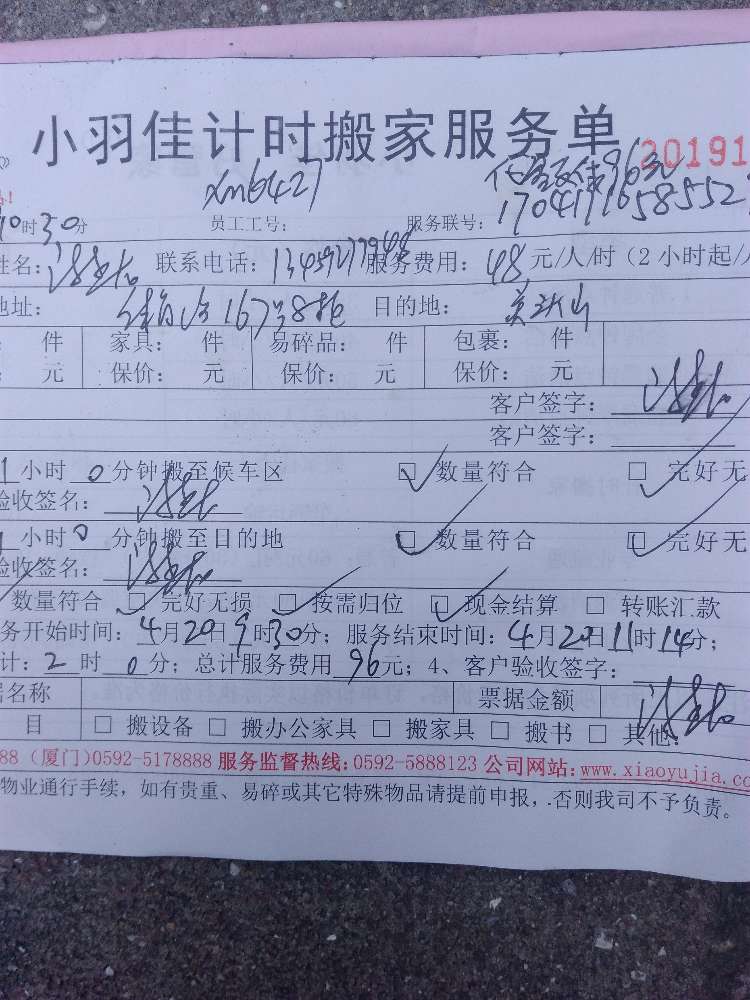 小羽佳计时搬家服务单
20191
xm6427
时30分 员工工号: 服务联号: 1704171658552
姓名: 联系电话: 服务费用: 48元/人/时 (2小时起/人
地址: 167号 目的地:
件 家具: 件 易碎品: 件 包裹: 件
元 保价: 元 保价: 元 保价: 元
客户签字:
客户签字:
1小时0分钟搬至候车区 数量符合 □ 完好无
验收签名:
小时0分钟搬至目的地 数量符合 □ 完好无
验收签名:
数量符合 □ 完好无损 □ 按需归位 □ 现金结算 □ 转账汇款
务开始时间: 4月20日9时30分; 服务结束时间: 4月20日11时14分;
计: 2时0分; 总计服务费用96元; 4、客户验收签字:
据名称 票据金额
目 □ 搬设备 □ 搬办公家具 □ 搬家具 □ 搬书 □ 其他:
88 (厦门)0592-5178888 服务监督热线:0592-5888123 公司网站:www.xiaoyujia.co
物业通行手续,如有贵重、易碎或其它特殊物品请提前申报,.否则我司不予负责。